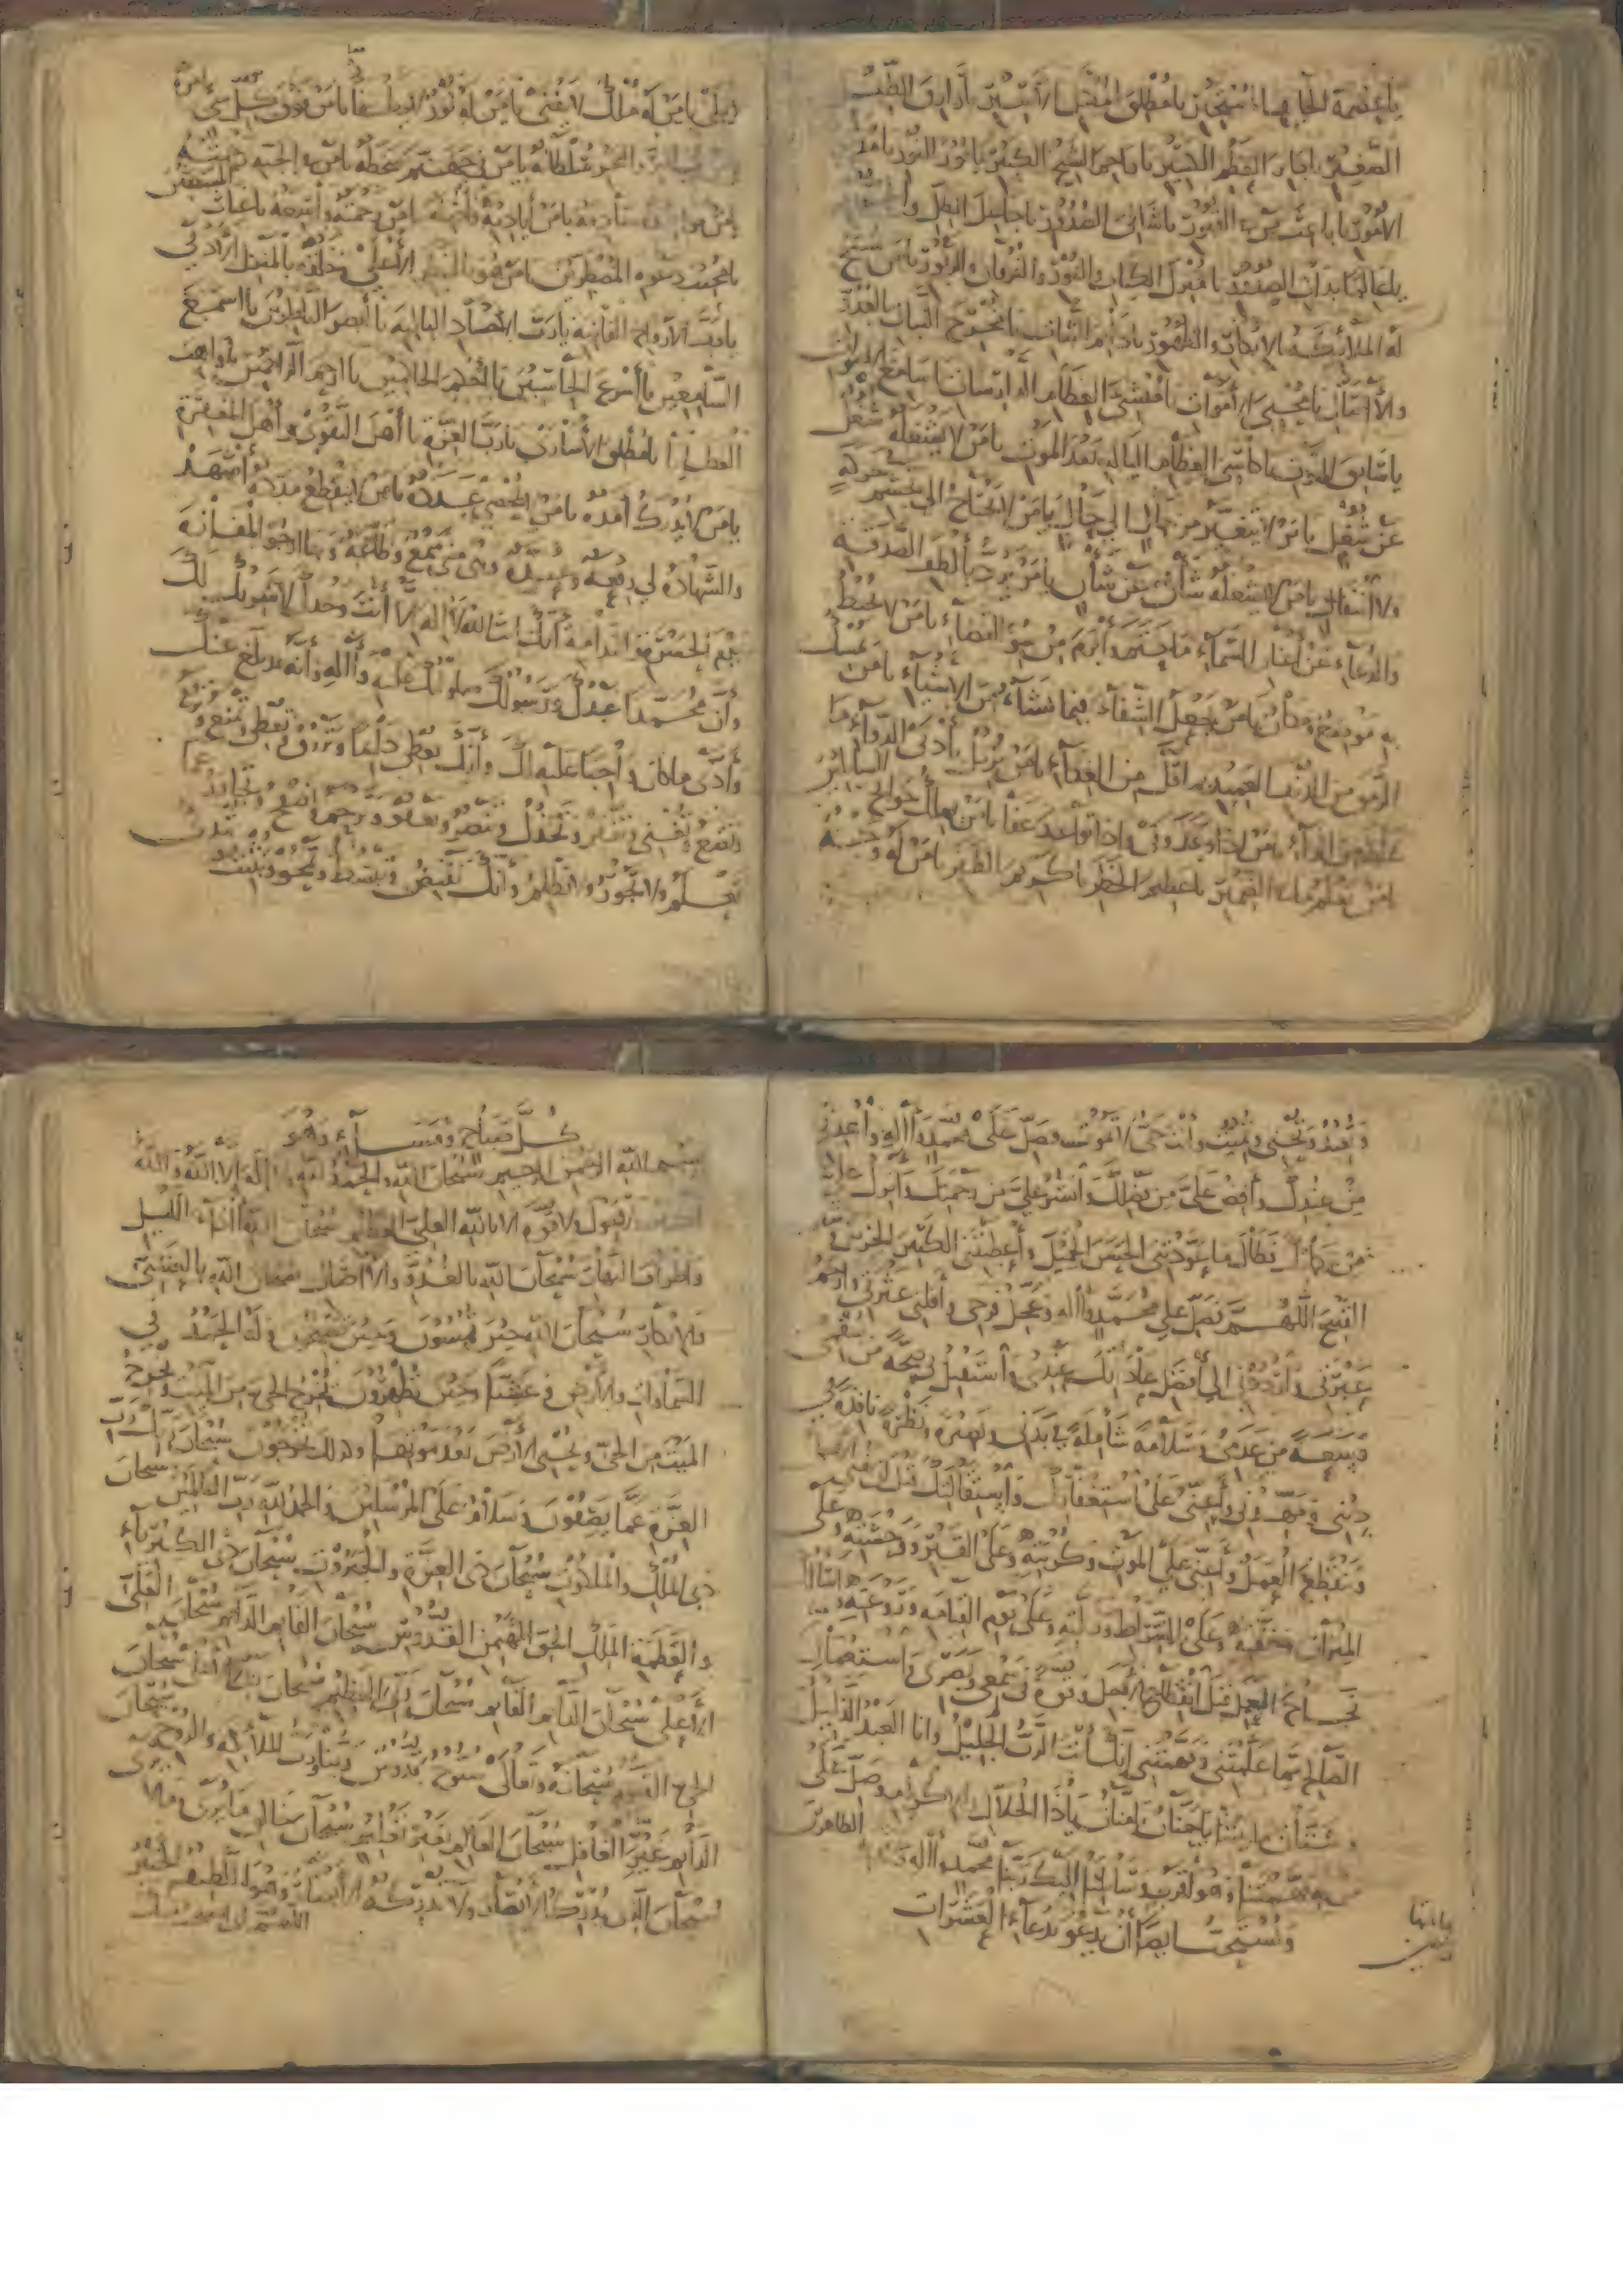 يا عصمة الخائف المستجير يا مطلق المكبل الأسير يا رازق الطفل
الصغير يا جابر العظم الكسير يا راحم الشيخ الكبير يا نور النور يا مدبر
الأمور يا باعث من في القبور يا شافي الصدور يا جاعل الظل و
يا عالما بذات الصدور يا منزل الكتاب والنور والفرقان والزبور يا من تسبح
له الملائكة بالإبكار والظهور يا دائم الثبات يا مخرج النبات بالغدو
والآصال يا محيي الأموات يا منشئ العظام الدارسات يا سامع الصوت
يا سابق الفوت يا كاسي العظام البالية بعد الموت يا من لا يشغله شغل
عن شغل يا من لا يتغير من حال إلى حال يا من لا يحتاج إلى تجشم حركة
ولا انتقال يا من لا يشغله شأن عن شأن يا من يرد بألطف الصدقة
والدعاء عن أعنان السماء ما حتم وأبرم من سوء القضاء يا من لا يحيط
به موضع ومكان يا من يجعل الشفاء فيما يشاء من الأشياء يا من يمسك
الرمق من الدنف العميد بما قل من الغذاء يا من يزيل بأدنى الدواء ما
غلظ من الداء يا من إذا وعد وفى وإذا توعد عفا يا من يملك حوائج السائلين
يا من يعلم ما في الضمير يا عظيم الخطر يا كريم الظفر يا من له وجه لا
يبلى يا من له ملك لا يفنى يا من له نور لا يطفأ يا من فوق كل شيء
والبحر سلطانه يا من في جهنم سخطه يا من في الجنة رحمته
يا من أياديه فاضلة يا من رحمته واسعة يا غياث المستغيثين
يا مجيب دعوة المضطرين يا من هو بالمنظر الأعلى وخلفه بالمنزل الأدنى
يا رب الأرواح الفانية يا رب الأجساد البالية يا أبصر الناظرين يا أسمع
السامعين يا أسرع الحاسبين يا أحكم الحاكمين يا أرحم الراحمين يا واهب
العطايا يا مطلق الأسارى يا رب العزة يا أهل التقوى وأهل المغفرة
يا من لا يدرك أمده يا من لا يحصى عدده يا من لا ينقطع مدده أشهد
والشهادة لي رفعة وعدة وهي مني سمع وطاعة وبها أرجو المفازة
يوم الحسرة والندامة أنك أنت الله لا إله إلا أنت وحدك لا شريك لك
وأن محمدا عبدك ورسولك صلواتك عليه وآله وأنه قد بلغ عنك
وأدى ما كان واجبا عليه لك وأنك تعطي دائما وترزق وتعطي وتمنع وترفع
وتضع وتغني وتفقر وتخذل وتنصر وتعفو وترحم وتصفح وتجاوز عما
تعلم ولا تجور ولا تظلم وأنك تقبض وتبسط وتمحو وتثبت
وتعيد وتحيي وتميت وأنت حي لا تموت فصل على محمد وآله واهدني
من عندك وأفض علي من فضلك وانشر علي من رحمتك وأنزل علي
من بركاتك فطال ما عودتني الحسن الجميل وأعطيتني الكثير الجزيل
القبيح اللهم فصل على محمد وآله وعجل فرجي وأقلني عثرتي وارحم
عبرتي وارددني إلى أفضل عاداتك عندي واستقبل بي صحة من سقمي
وسعة من عدمي وسلامة شاملة في بدني وبصيرة ونظرة نافذة في
ديني ومهدني وأعني على استغفارك واستقالتك قبل أن يفنى
وينقطع العمل وأعني على الموت وكربته وعلى القبر ووحشته وعلى
الميزان وخفته وعلى الصراط وزلته وعلى يوم القيامة وروعته وأسألك
نجاح العمل قبل انقطاع الأجل وقوة في سمعي وبصري واستعمال
الصالح مما علمتني وفهمتني إنك أنت الرب الجليل وأنا العبد الذليل
وشتان ما بيننا يا حنان يا منان يا ذا الجلال والإكرام وصل على
من به فهمتنا وهو أقرب وسائلنا إليك ربنا محمد وآله الطاهرين
ويستحب أيضا أن يدعو بدعاء العشرات
كل صباح ومساء وهو
بسم الله الرحمن الرحيم سبحان الله والحمد لله ولا إله إلا الله والله
أكبر ولا حول ولا قوة إلا بالله العلي العظيم سبحان الله آناء الليل
وأطراف النهار سبحان الله بالغدو والآصال سبحان الله بالعشي
والإبكار سبحان الله حين تمسون وحين تصبحون وله الحمد في
السماوات والأرض وعشيا وحين تظهرون يخرج الحي من الميت ويخرج
الميت من الحي ويحيي الأرض بعد موتها وكذلك تخرجون سبحان ربك رب
العزة عما يصفون وسلام على المرسلين والحمد لله رب العالمين سبحان
ذي الملك والملكوت سبحان ذي العزة والجبروت سبحان ذي الكبرياء
والعظمة الملك الحق المهيمن القدوس سبحان القائم الدائم سبحان العلي
الأعلى سبحان الدائم القائم سبحان ربي العظيم سبحان ربي الأعلى سبحان
الحي القيوم سبحانه وتعالى سبوح قدوس ربنا ورب الملائكة والروح سبحان
الدائم غير الغافل سبحان العالم بغير تعليم سبحان خالق ما يرى وما لا يرى
سبحان الذي يدرك الأبصار ولا تدركه الأبصار وهو اللطيف الخبير